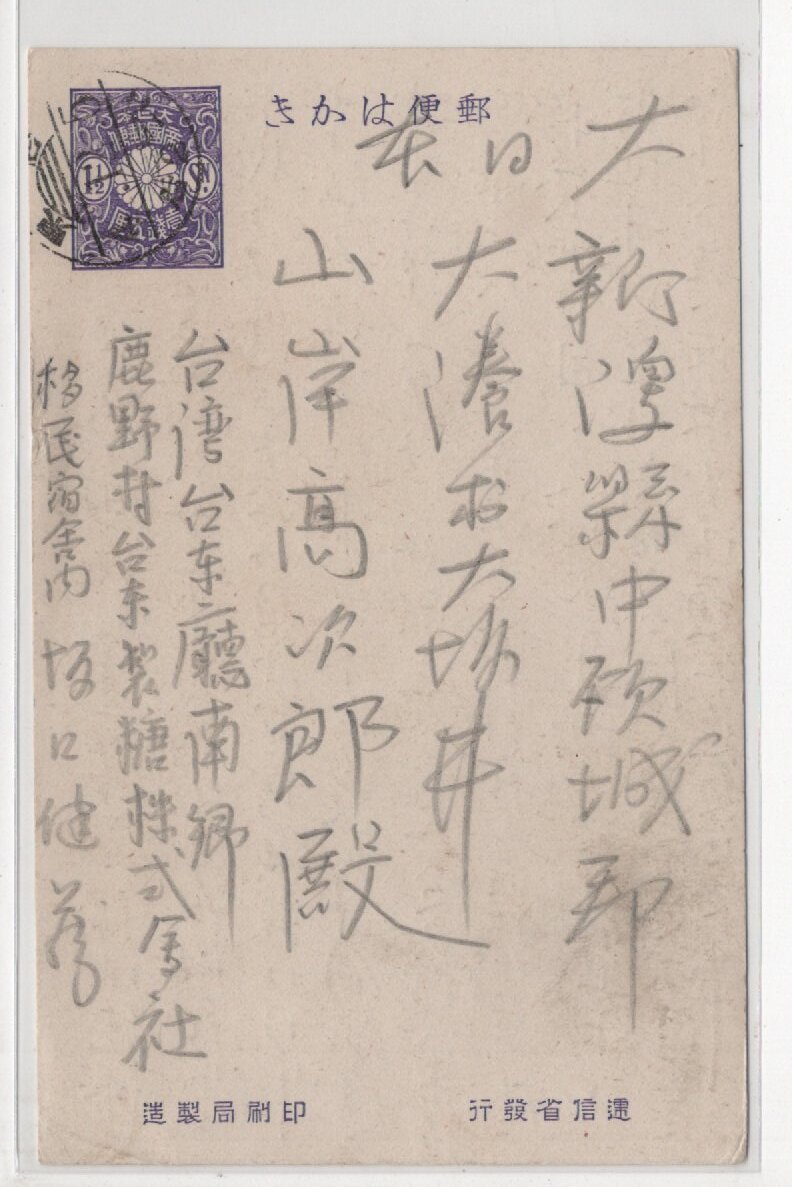 郵便はかき
大日本
新潟縣中頸城郡
大瀁村大坂井
山岸高次郎殿
台湾台东廳南鄉
鹿野村台东製糖株式会社
移民宿舍内 坂口健蔵
大日本
帝國郵便
壹錢五厘
1½ Sn.
遞信省發行
印刷局製造